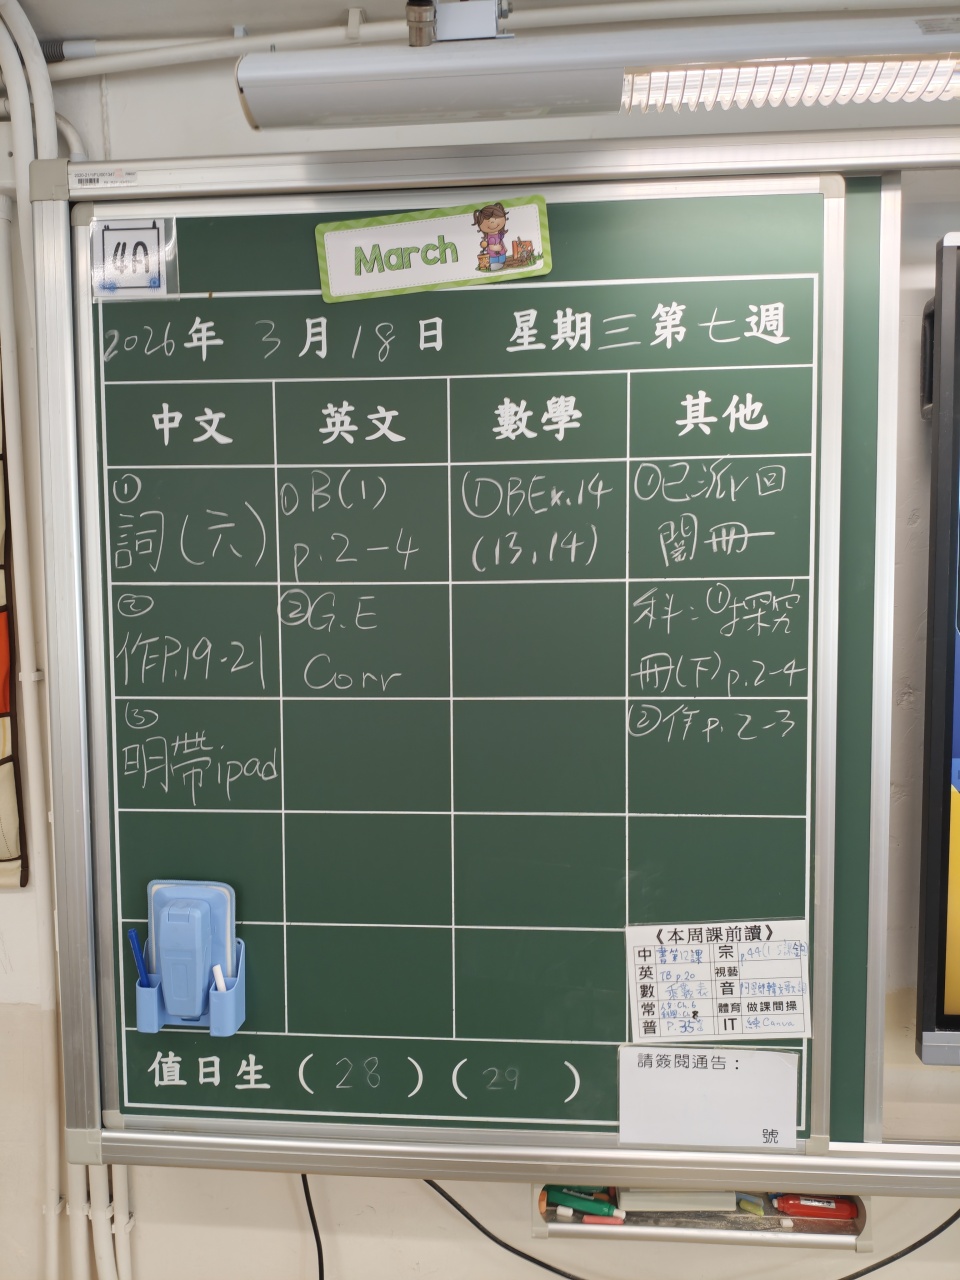 4A
March
2026年 3月18日 星期三第七週
中文 英文 數學 其他
① 詞(六)
② 作P.19-21
③ 明帶ipad
① B(1) p.2-4
② G.E Corr
① BEx.14 (13,14)
① 已派回 閱冊
科:① 探究冊(下) p.2-4
② 作p.2-3
《本周課前讀》
中 書第12課 宗
英 TB p.20 視藝
數 音
常 體育 做課間操
普 P.35 IT 練Canva
值日生 (28) (29)
請簽閱通告:
號